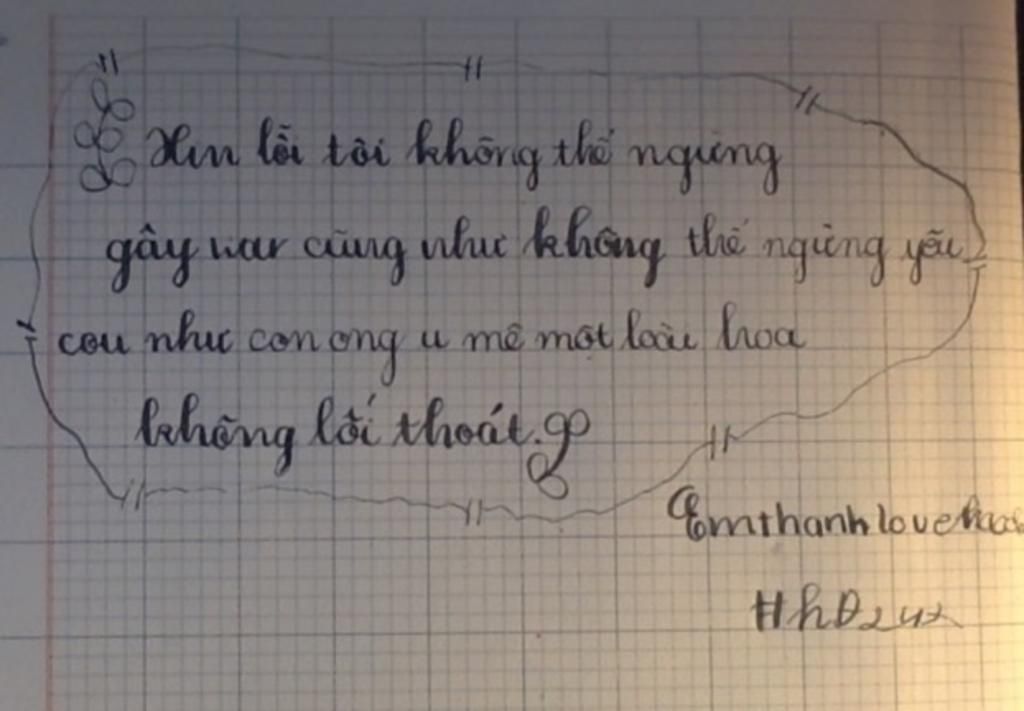 Xin lỗi tôi không thể ngừng
gây war cũng như không thể ngừng yêu
cou như con ong u mê một loài hoa
không lối thoát.
Emthanhlove